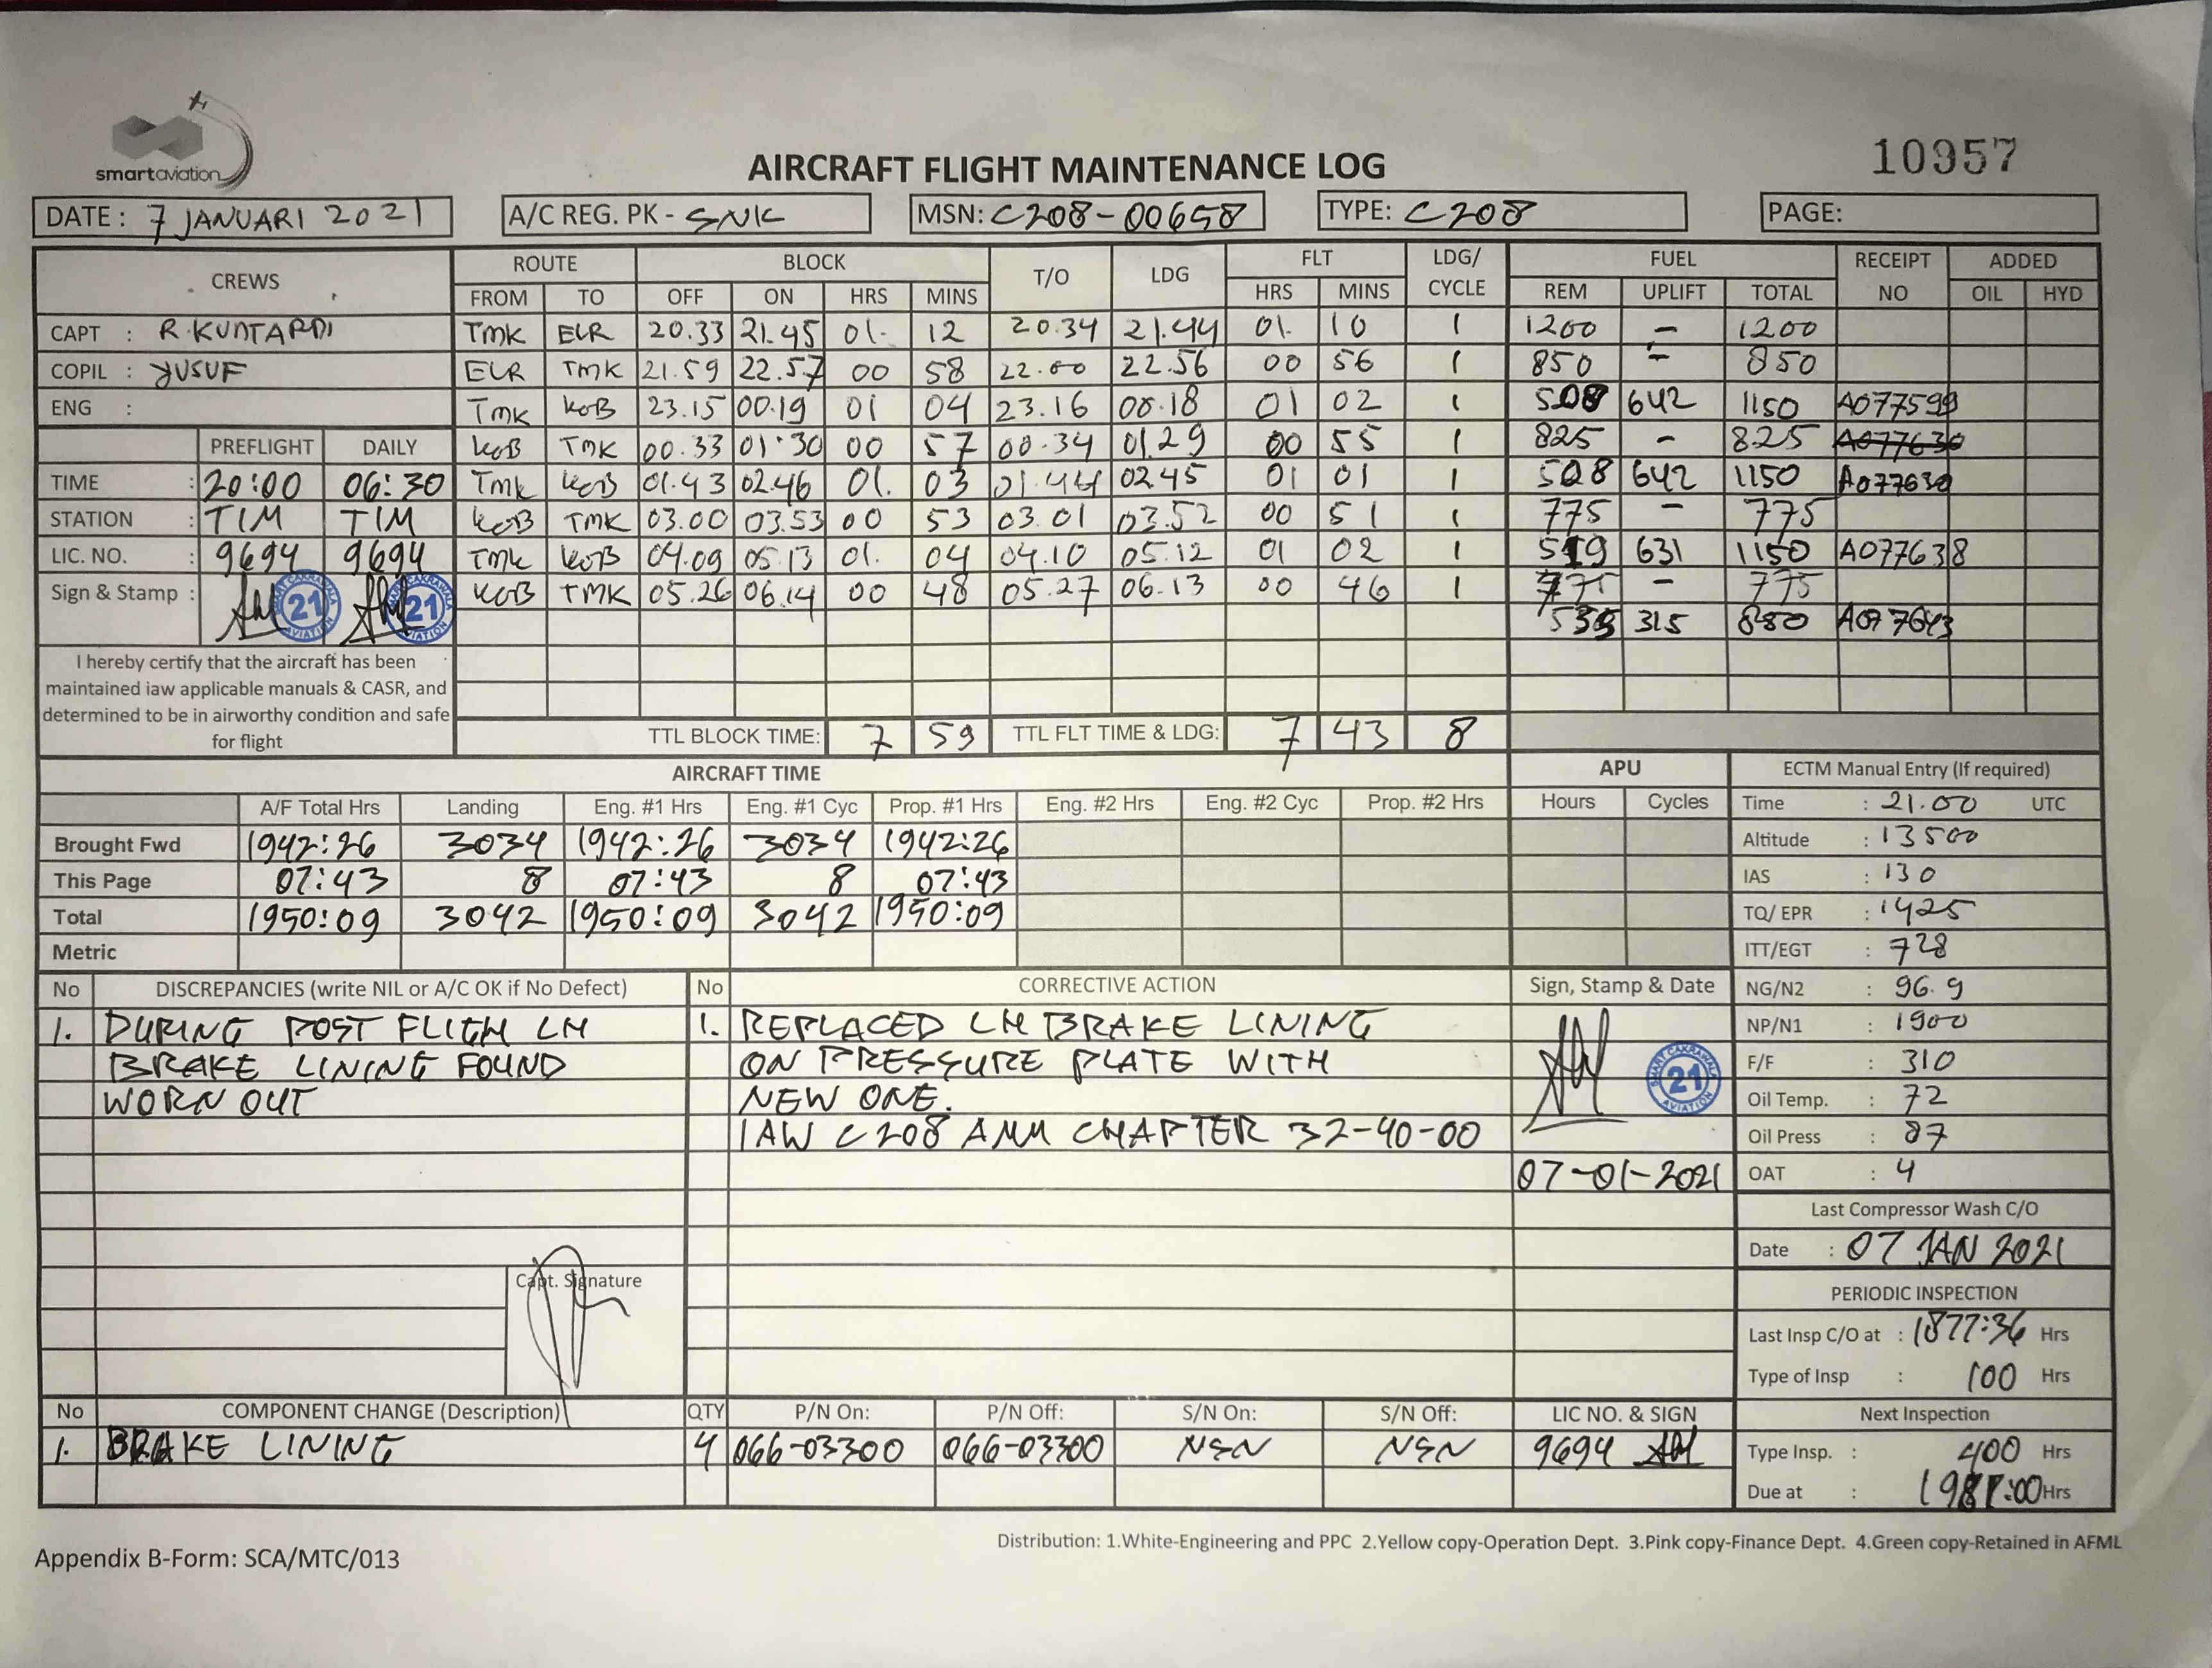 smartaviation
AIRCRAFT FLIGHT MAINTENANCE LOG
10957
DATE : 7 JANUARI 2021 A/C REG. PK - SNK MSN: C208-00658 TYPE: C208 PAGE:
CREWS ROUTE BLOCK T/O LDG FLT LDG/CYCLE FUEL RECEIPT NO ADDED
FROM TO OFF ON HRS MINS HRS MINS REM UPLIFT TOTAL OIL HYD
CAPT : R.KUNTARDI TMK ELR 20.33 21.45 01. 12 20.34 21.44 01. 10 1 1200 – 1200
COPIL : YUSUF ELR TMK 21.59 22.57 00 58 22.00 22.56 00 56 1 850 – 850
ENG : TMK KOB 23.15 00.19 01 04 23.16 00.18 01 02 1 508 642 1150 A077599
PREFLIGHT DAILY KOB TMK 00.33 01.30 00 57 00.34 01.29 00 55 1 825 – 825 A077630
TIME : 20:00 06:30 TMK KOB 01.43 02.46 01. 03 01.44 02.45 01 01 1 508 642 1150 A077630
STATION : TIM TIM KOB TMK 03.00 03.53 00 53 03.01 03.52 00 51 1 775 – 775
LIC. NO. : 9694 9694 TMK KOB 04.09 05.13 01. 04 04.10 05.12 01 02 1 519 631 1150 A077638
Sign & Stamp : 21 21 KOB TMK 05.26 06.14 00 48 05.27 06.13 00 46 1 775 – 775
315 A077643
I hereby certify that the aircraft has been
maintained iaw applicable manuals & CASR, and
determined to be in airworthy condition and safe
for flight
TTL BLOCK TIME: 7 59 TTL FLT TIME & LDG: 7 43 8
AIRCRAFT TIME APU ECTM Manual Entry (If required)
A/F Total Hrs Landing Eng. #1 Hrs Eng. #1 Cyc Prop. #1 Hrs Eng. #2 Hrs Eng. #2 Cyc Prop. #2 Hrs Hours Cycles
Brought Fwd 1942:26 3034 1942:26 3034 1942:26
This Page 07:43 8 07:43 8 07:43
Total 1950:09 3042 1950:09 3042 1950:09
Metric
Time : 21.00 UTC
Altitude : 13500
IAS : 130
TQ/ EPR : 1425
ITT/EGT : 728
NG/N2 : 96.9
NP/N1 : 1900
F/F : 310
Oil Temp. : 72
Oil Press : 87
OAT : 4
No DISCREPANCIES (write NIL or A/C OK if No Defect)
1. DURING POST FLIGH LH
BRAKE LINING FOUND
WORN OUT
Capt. Signature
No CORRECTIVE ACTION
1. REPLACED LH BRAKE LINING
ON PRESSURE PLATE WITH
NEW ONE.
IAW C208 AMM CHAPTER 32-40-00
Sign, Stamp & Date
SMART CAKRAWALA 21 AVIATION
07-01-2021
Last Compressor Wash C/O
Date : 07 JAN 2021
PERIODIC INSPECTION
Last Insp C/O at : 1877:36 Hrs
Type of Insp : 100 Hrs
Next Inspection
Type Insp. : 400 Hrs
Due at : 1981:00 Hrs
No COMPONENT CHANGE (Description) QTY P/N On: P/N Off: S/N On: S/N Off: LIC NO. & SIGN
1. BRAKE LINING 4 066-03300 066-03300 NSN NSN 9694
Distribution: 1.White-Engineering and PPC 2.Yellow copy-Operation Dept. 3.Pink copy-Finance Dept. 4.Green copy-Retained in AFML
Appendix B-Form: SCA/MTC/013